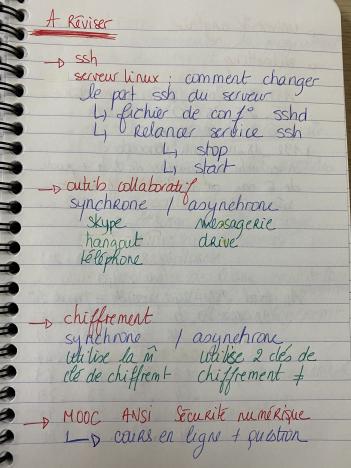 A Réviser
→ ssh
serveur linux : comment changer
le port ssh du serveur
↳ fichier de conf° sshd
↳ Relancer service ssh
↳ stop
↳ start
→ outils collaboratif
synchrone / asynchrone
skype messagerie
hangout drive
téléphone
→ chiffrement
synchrone / asynchrone
utilise la m̂ utilise 2 clés de
clé de chiffremt chiffrement ≠
→ MOOC ANSI Sécurité numérique
↳ cours en ligne + question